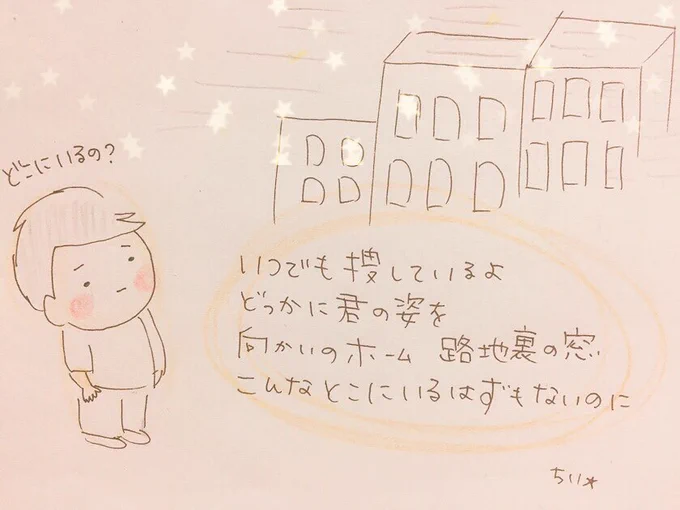 どこにいるの?
いつでも捜しているよ
どっかに君の姿を
向かいのホーム 路地裏の窓
こんなとこにいるはずもないのに
ちい☆